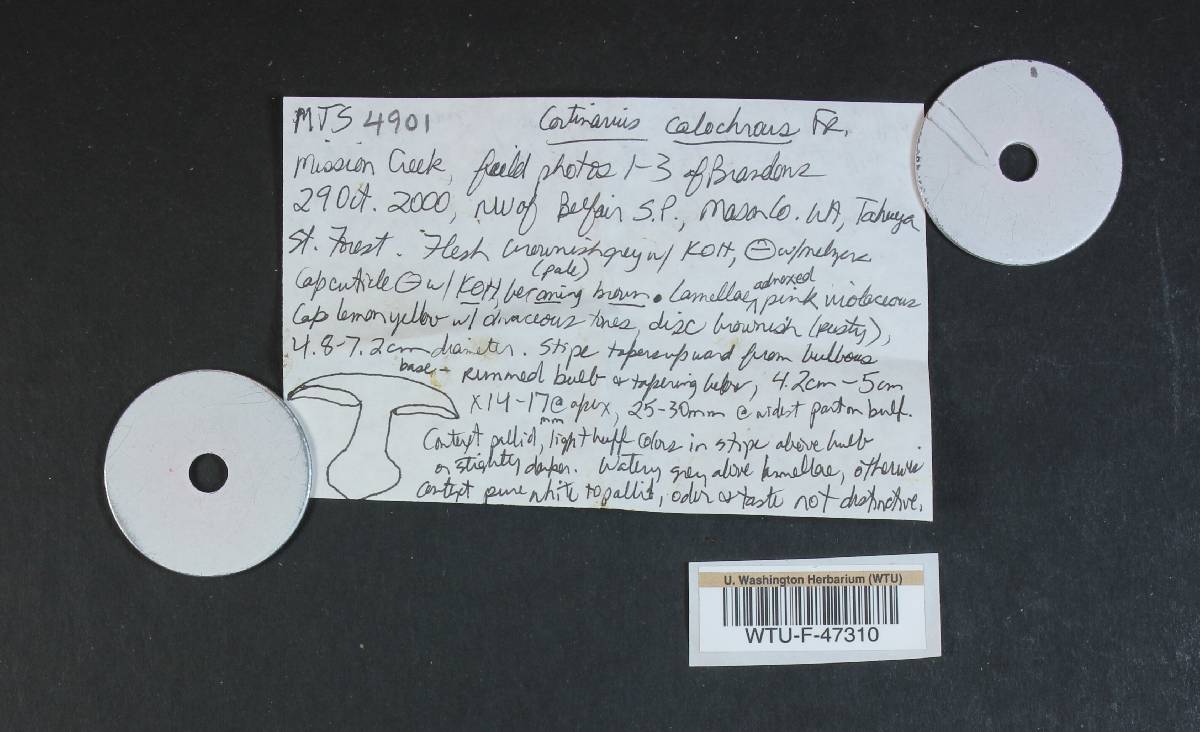 MTS 4901 Cortinarius calochrous Fr.
Mission Creek, field photos 1-3 of Brandons
29 Oct. 2000, NW of Belfair S.P., Mason Co. WA, Tahuya
St. Forest. Flesh brownish grey w/ KOH, ⊖ w/ melzers
(pale)
Cap cuticle ⊖ w/ KOH, becoming brown. Lamellae adnexed pink violaceous
Cap lemon yellow w/ olivaceous tones, disc brownish (rusty),
4.8-7.2cm diameter. Stipe tapers upward from bulbous
base - rimmed bulb or tapering below, 4.2cm-5cm
x 14-17 mm @ apex, 25-30mm @ widest part on bulb.
Context pallid, light buff colors in stipe above bulb
or slightly darker. Watery grey above lamellae, otherwise
context pure white to pallid, odor & taste not distinctive.
U. Washington Herbarium (WTU)
WTU-F-47310